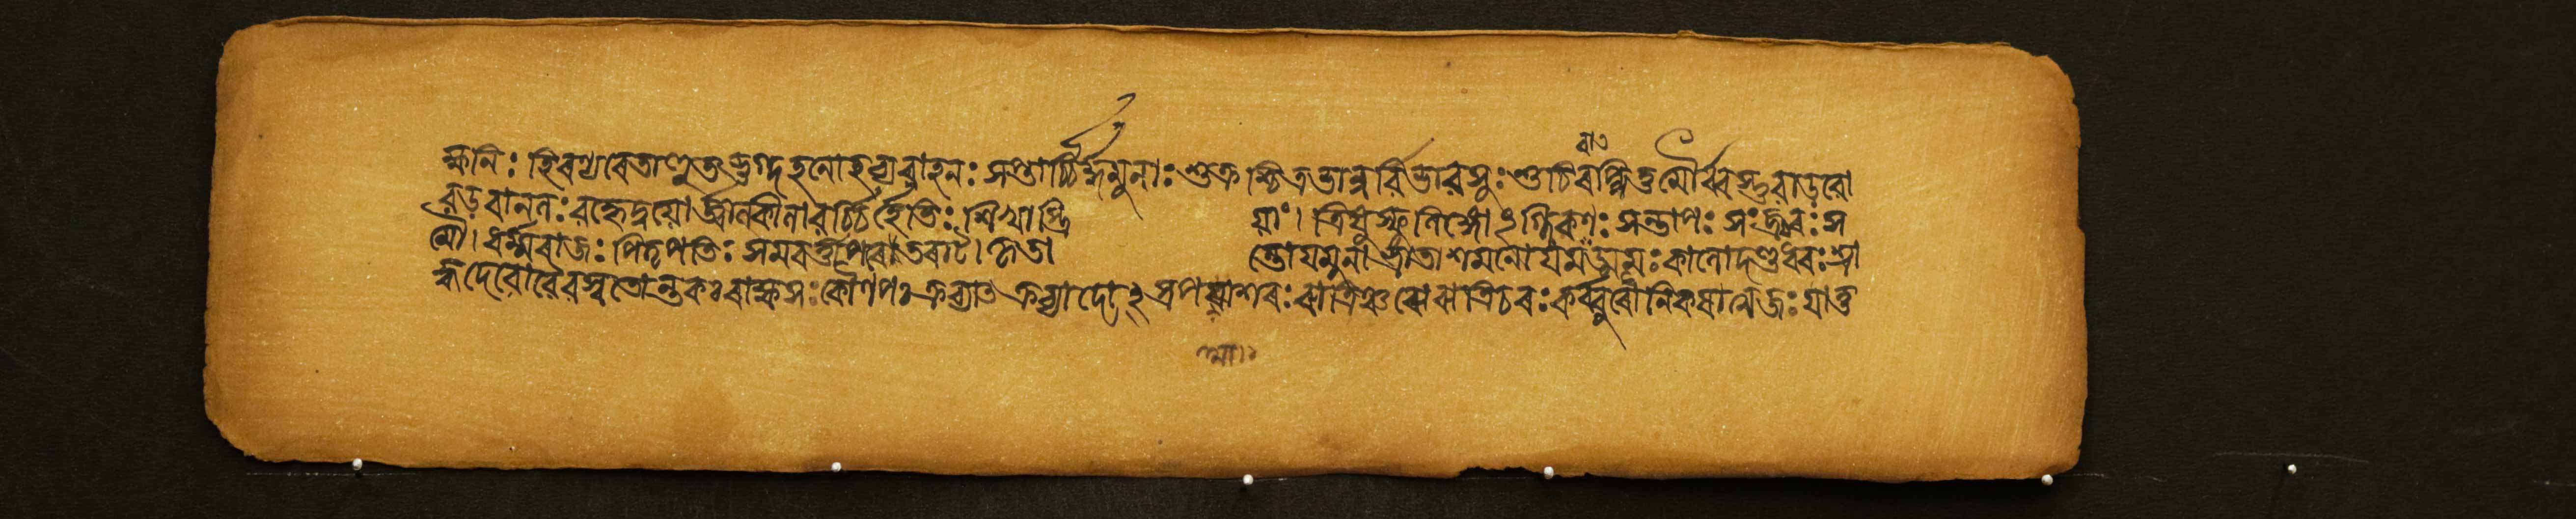 ক্ষনিঃ হিৰণ্যৰেতাহুতভুগ্দহনোহব্যৱাহনঃ সপ্তার্চ্চির্দ্দমুনাঃ শুক্রশ্চিত্রভানুর্ৱিভাৱসুঃ শুচিৰপ্পিত্তমৌর্ব্বস্তুৱাড়ৱো
ৱড়ৱানলঃ ৱহ্নের্দ্বয়োর্জ্জ্বালকীলাৱর্চ্চির্হেতিঃ শিখাস্ত্রি য়াং। ত্রিষুস্ফুলিঙ্গোঽগ্নিকণঃ সন্তাপঃ সংজ্বৰঃ স
মৌ। ধর্ম্মৰাজঃ পিতৃপতিঃ সমৱর্ত্তীপৰেতৰাট্। কৃতা ন্তোযমুনাভ্রাতাশমনোযমৰাড্যমঃ কালোদণ্ডধৰঃ শ্রা
দ্ধদেৱোৱৈৱস্বতোন্তকঃ ৰাক্ষসঃ কৌণপঃ ক্রব্যাৎ ক্রব্যাদোঽস্রপআশৰঃ ৰাত্রিঞ্চৰোৰাত্রিচৰঃ কর্ব্বুৰোনিকষাত্মজঃ যাতু